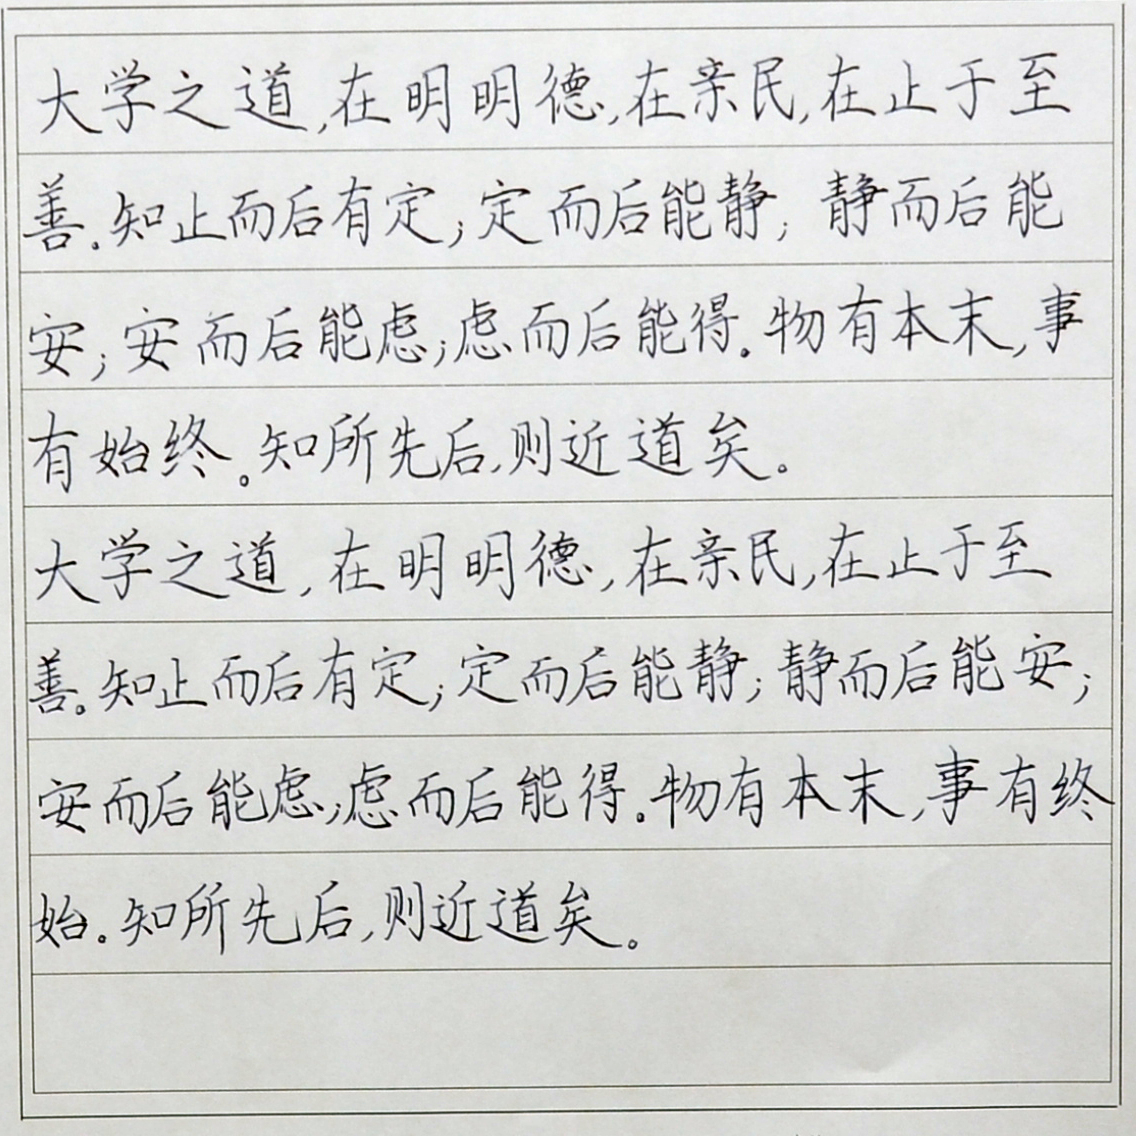 大学之道,在明明德,在亲民,在止于至
善。知止而后有定;定而后能静;静而后能
安;安而后能虑;虑而后能得。物有本末,事
有始终。知所先后,则近道矣。
大学之道,在明明德,在亲民,在止于至
善。知止而后有定;定而后能静;静而后能安;
安而后能虑;虑而后能得。物有本末,事有终
始。知所先后,则近道矣。